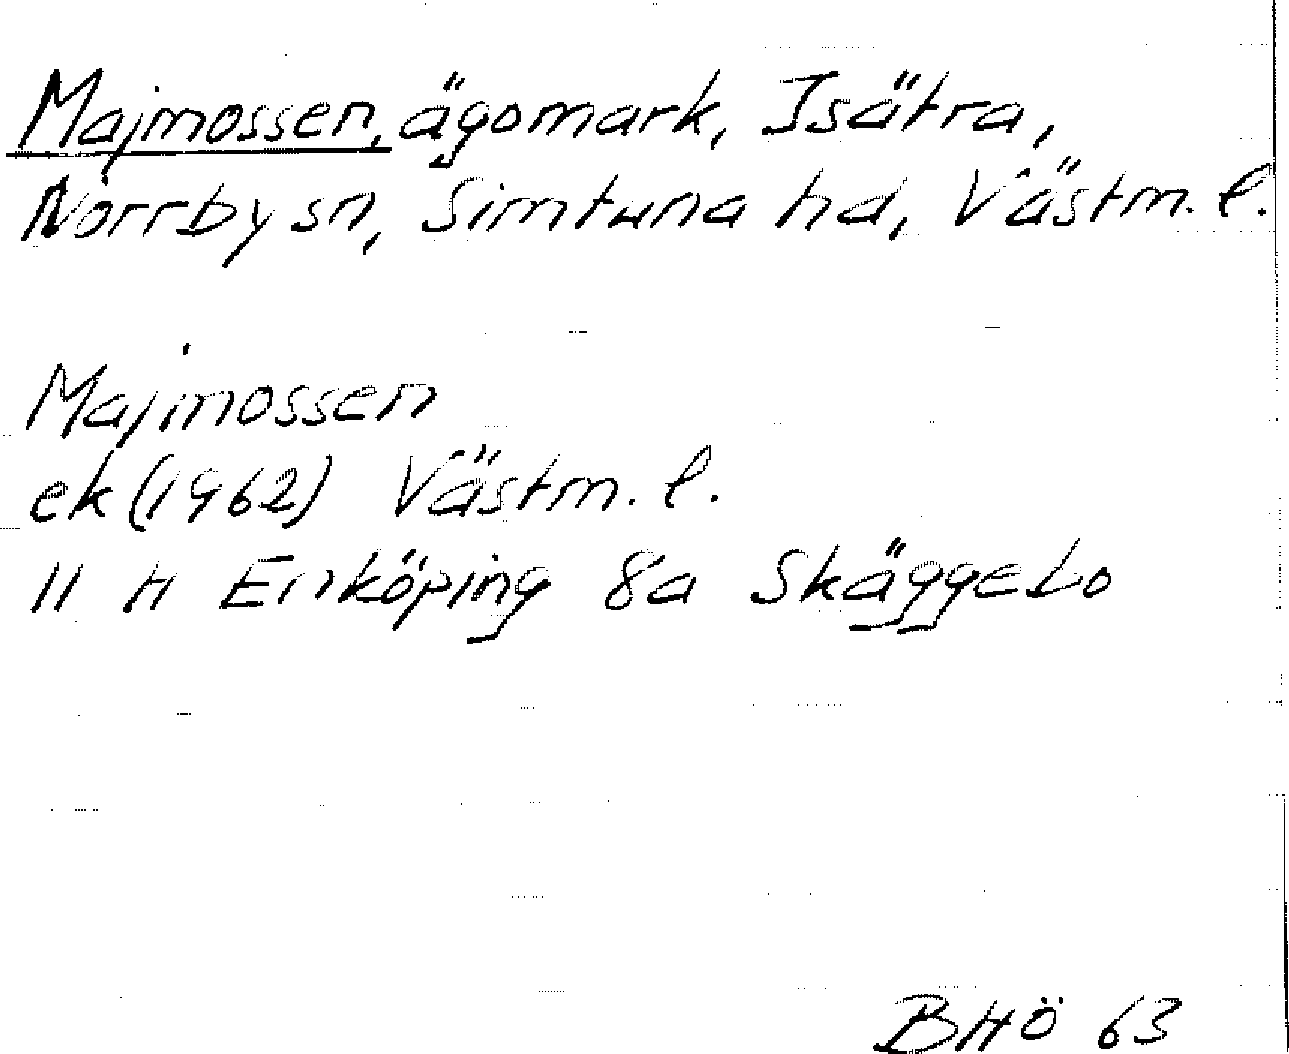 Majmossen, ägomark, Isätra,
Norrby sn, Simtuna hd, Västm. l.
Majmossen
ek (1962) Västm. l.
11 H Enköping 8a Skäggebo
BHÖ 63